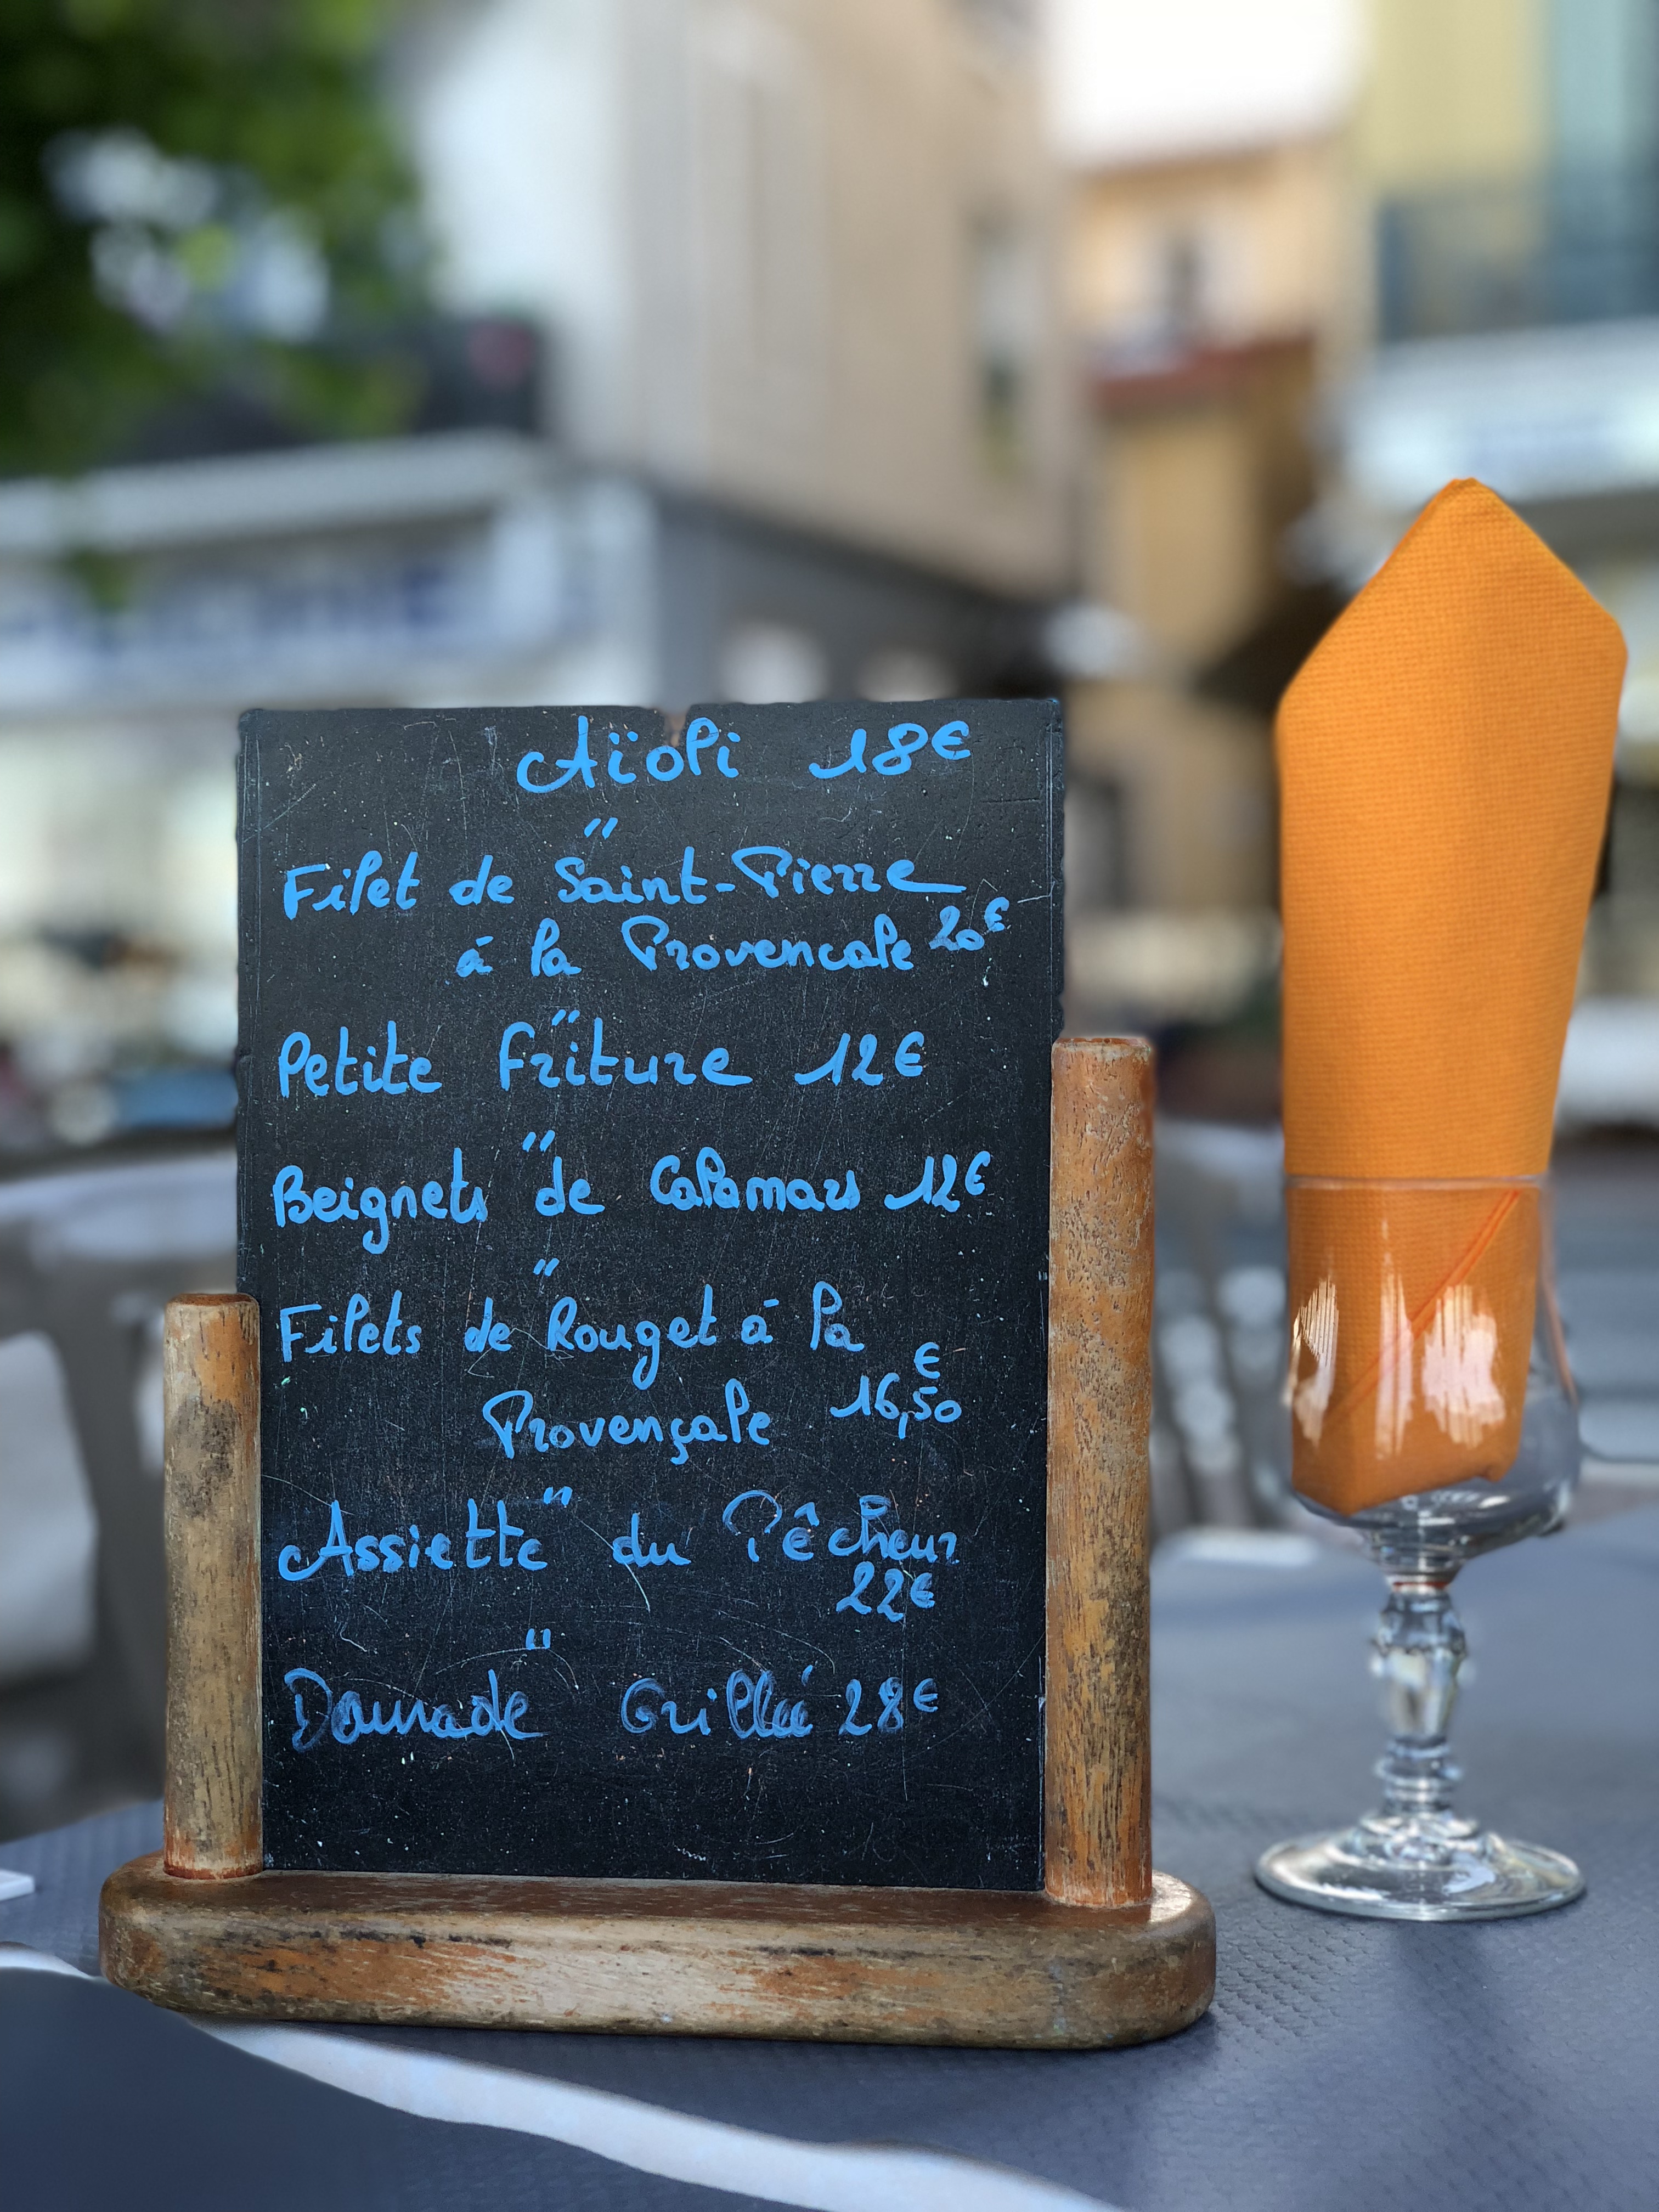 Aïoli 18€
"
Filet de Saint-Pierre
à la Provencale 20€
"
Petite Friture 12€
"
Beignets de Calamars 12€
"
Filets de Rouget à la
Provençale 16,50€
"
Assiette du Pêcheur
22€
"
Daurade Grillée 28€